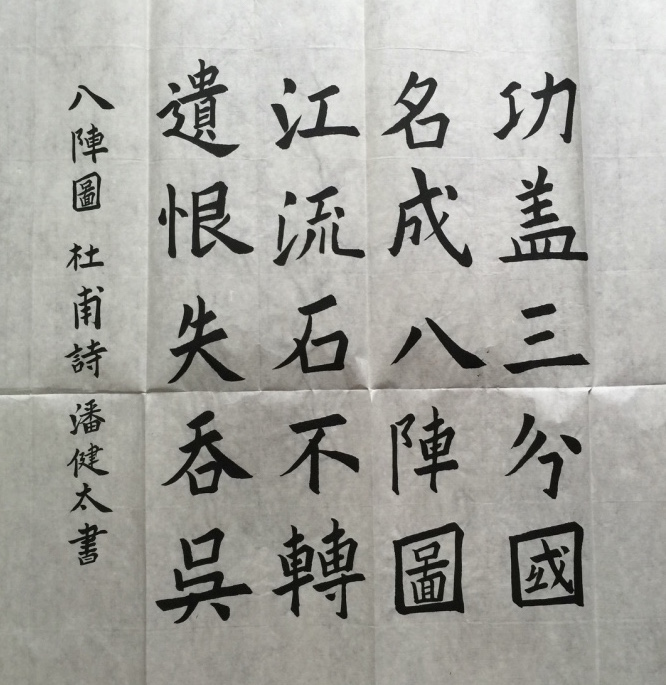 功盖三分國
名成八陣圖
江流石不轉
遺恨失吞吳
八陣圖 杜甫詩 潘健太書